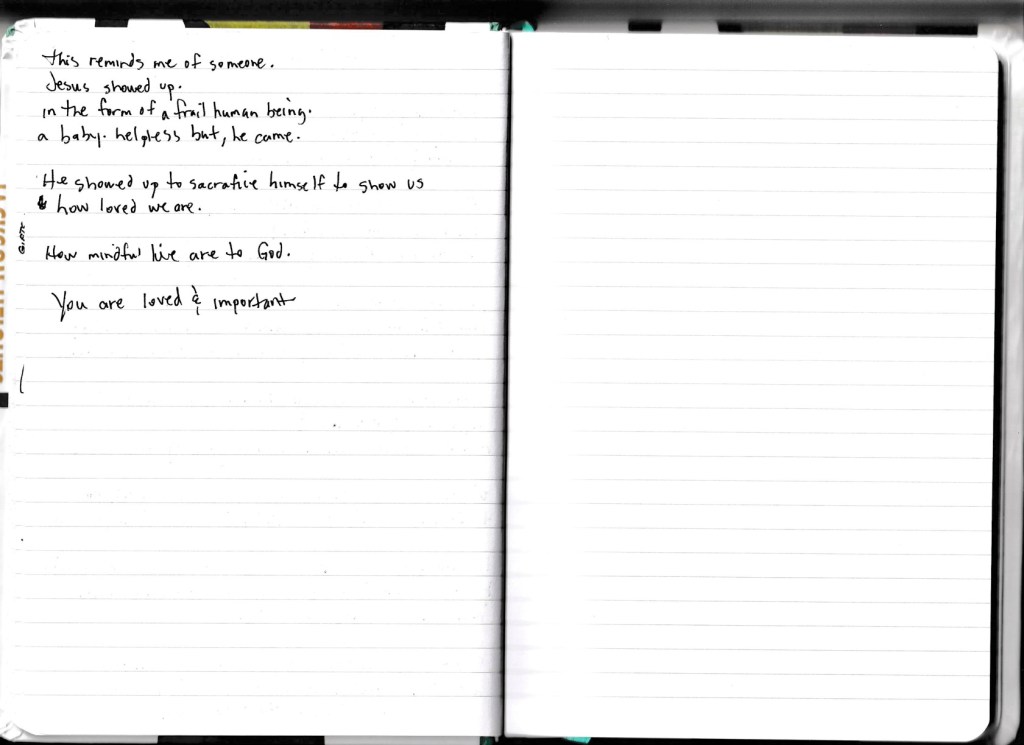 this reminds me of someone.
Jesus showed up.
in the form of a frail human being.
a baby. helpless but, he came.
He showed up to sacrafice himself to show us
how loved we are.
How mindful live are to God.
You are loved & important